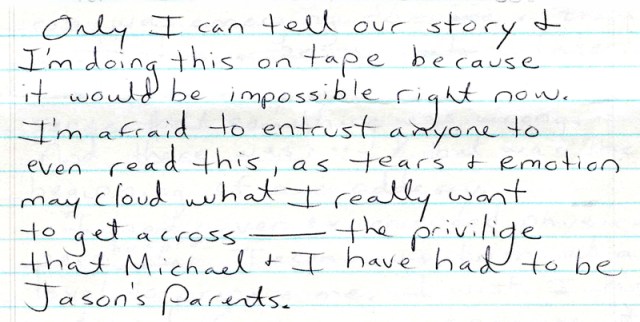 Only I can tell our story &
I'm doing this on tape because
it would be impossible right now.
I'm afraid to entrust anyone to
even read this, as tears & emotion
may cloud what I really want
to get across — the privilige
that Michael & I have had to be
Jason's Parents.